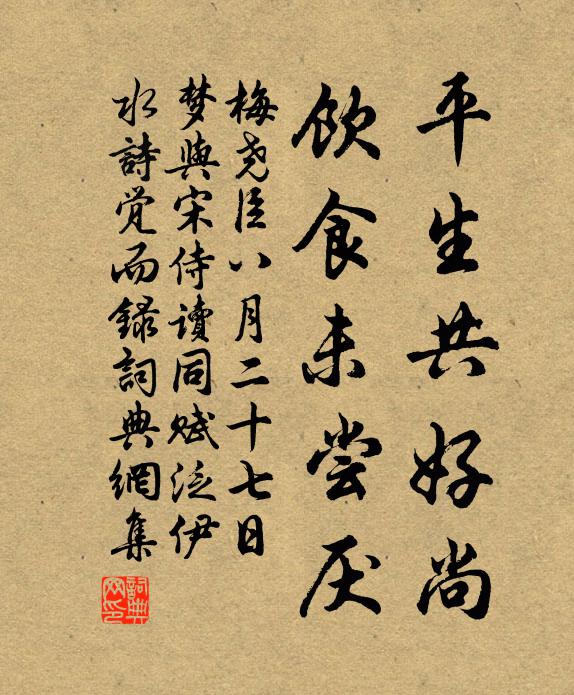 平生共好尚
飲食未尝厌
梅尧臣八月二十七日
梦與宋侍讀同赋泛伊
水詩觉而録詞典網集
詞典网印